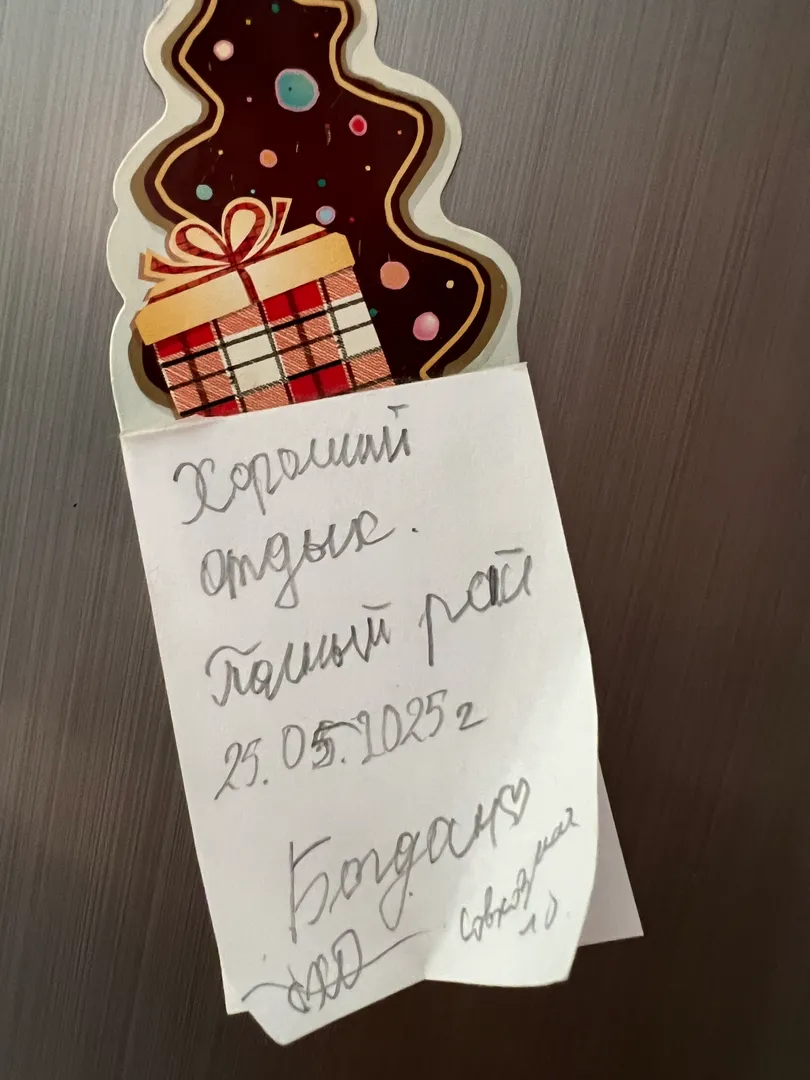 Хороший
отдых.
Полный рай
25.05.2025г
Богдан♡
Совхозная
10.